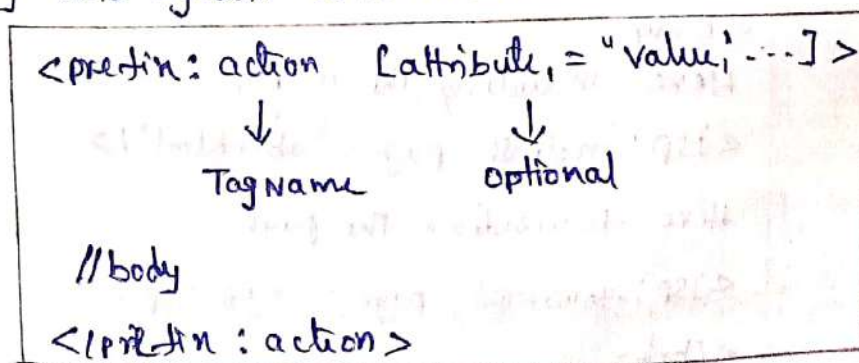 <prefix: action [attribute₁ = "value₁' ...]>
↓ ↓
TagName optional
//body
</prefix: action>